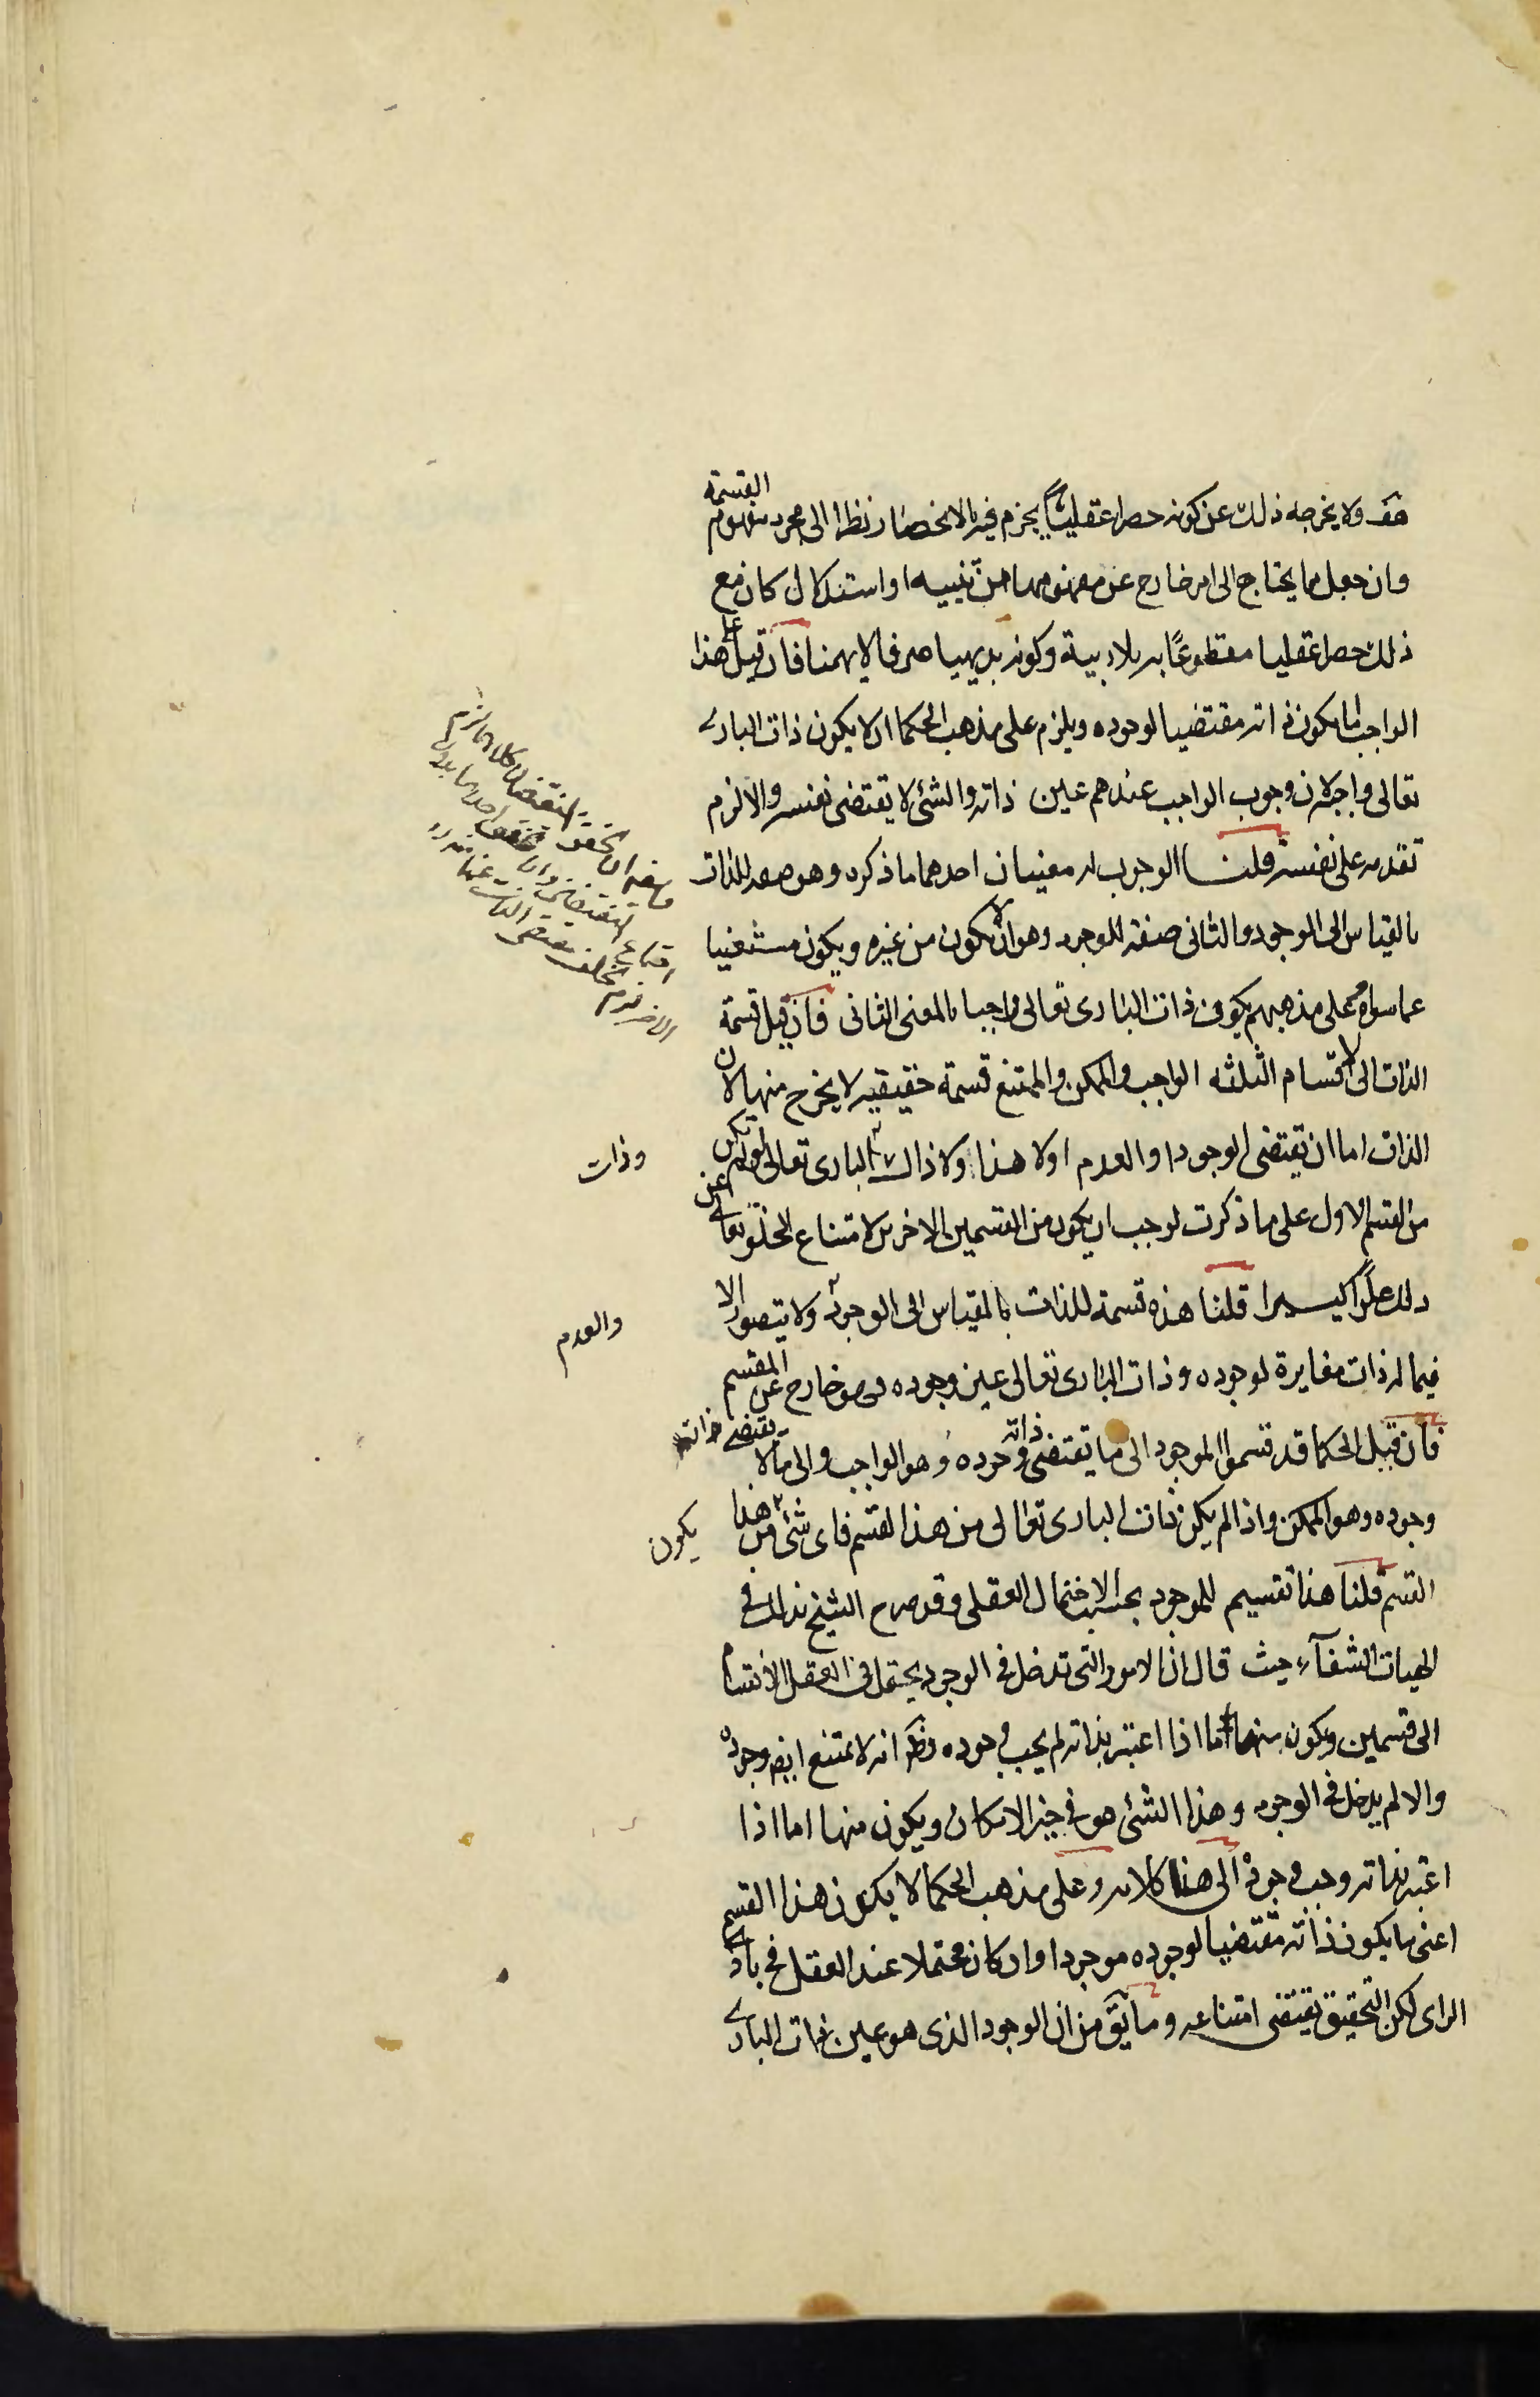 ولا يخرجه ذلك عن كونه حصرا عقليا يجزم فيه بالانحصار نظرا الى مجرد مفهوم القسمة
وان جعل مما يحتاج الى امر خارج عن مفهومها من تنبيه او استدلال كان مع
ذلك حصرا عقليا مقطوعًا به بلا ريبة وكونه بديهيا صرفا لا يهمنا فان قيل على هذا
الواجب ما يكون ذاته مقتضيا لوجوده ويلزم على مذهب الحكما ان لا يكون ذات البارى
تعالى واجبا لان وجوب الواجب عندهم عين ذاته والشئ لا يقتضى نفسه والا لزم
تقدمه على نفسه قلنا الوجوب له معنيان احدهما ما ذكره وهو صفة للذات
بالقياس الى الوجود والثانى صفة للوجود وهو ان لا يكون من غيره ويكون مستغنيا
عما سواه وعلى مذهبهم يكون ذات البارى تعالى واجبا بالمعنى الثانى فان قيل قسمة
الذات الى الاقسام الثلثه الواجب والممكن والممتنع قسمة حقيقيه لا يخرج منها لان
الذات اما ان يقتضى الوجود او العدم او لا هذا ولا ذاك وذات البارى تعالى لو لم تكن
من القسم الاول على ما ذكرت لوجب ان يكون من القسمين الاخرين لامتناع الخلو تعالى عن
ذلك علوًا كبيرا قلنا هذه قسمة للذات بالقياس الى الوجود والعدم ولا يتصور الا
فيما له ذات مغايرة لوجوده وذات البارى تعالى عين وجوده فهو خارج عن المقسم
فان قيل الحكما قد قسموا الموجود الى ما يقتضى ذاته وجوده وهو الواجب والى ما لا يقتضى ذاته
وجوده وهو الممكن واذا لم يكن ذات البارى تعالى من هذا القسم فاى شئ يكون من هذا
القسم قلنا هذا تقسيم للموجود بحسب الاحتمال العقلى وقد صرح الشيخ بذلك فى
الهيات الشفآء حيث قال ان الامور التى تدخل فى الوجود يحتمل فى العقل الانقسام
الى قسمين ويكون منها ما اذا اعتبر بذاته لم يجب وجوده وظهر انه لا يمتنع ايضا وجوده
والا لم يدخل فى الوجود وهذا الشئ هو فى حيز الامكان ويكون منها ما اذا
اعتبر بذاته وجب وجوده الى هنا كلامه وعلى مذهب الحكما لا يكون هذا القسم
اعنى ما يكون ذاته مقتضيا لوجوده موجودا وان كان محتملا عند العقل فى بادى
الراى لكن التحقيق يقتضى امتناعه وما يق من ان الوجود الذى هو عين ذات البارى
وذات
والعدم
يكون